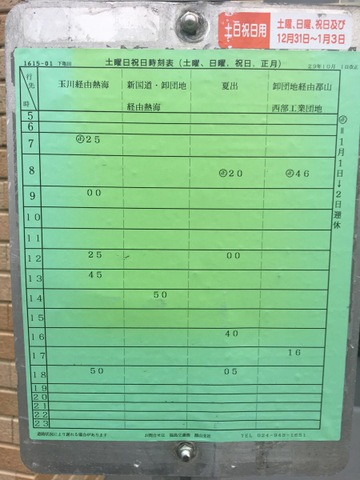 土日祝日用
土曜、日曜、祝日及び
12月31日～1月3日
1615-01
土曜日祝日時刻表（土曜、日曜、祝日、正月）
行先 時
玉川経由熱海
新国道・卸団地経由熱海
夏出
卸団地経由郡山西部工業団地
5
6
7 ㊣25
8 ㊣20 ㊣46
9 00
10
11
12 25 00
13 45
14 50
15
16 40
17 16
18 50 05
19
20
21
22
23
1月1日→2日運休
道路状況により遅れる場合があります
TEL